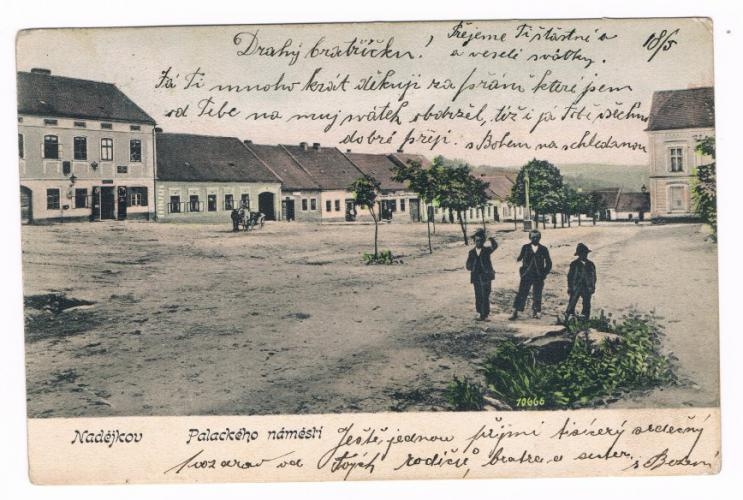 Drahý bratříčku!
Přejeme Ti šťastné a
a veselé svátky.
18/5
Já Ti mnoho krát děkuji za přání které jsem
od Tebe na muj svátek obdržel, též i já Tobě všechno
dobré přeji. s Bohem na schledanou
10666
Nadějkov Palackého náměstí
Ještě jednou přijmi tisícerý srdečný
pozdrav od Tvých rodičů, bratra a sester. s Bohem